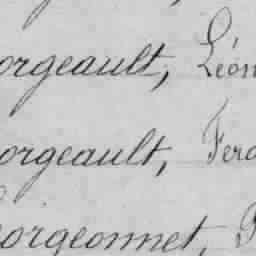 orgeault, Léon
orgeault, Ferd
orgeonnet, P